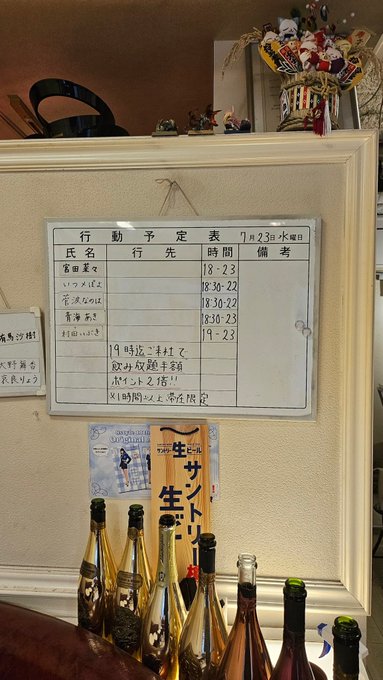 行動予定表 7月23日水曜日
氏名 行先 時間 備考
宮田菜々 18-23
いつメぱよ 18:30-22
菅波なのは 18:30-22
青海あき 18:30-23
村田いぶき 19-23
19時迄ご来社で
飲み放題半額
ポイント2倍!!
※1時間以上滞在限定
有馬沙樹
大野舞香
奈良りょう
Original
生ビール
サントリー
生ビ